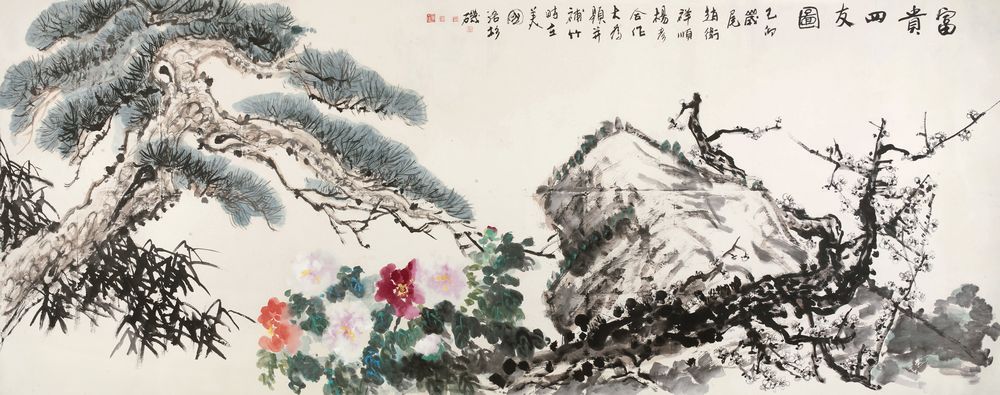 富貴四友圖
乙酉
歲尾
趙衛
群順
楊彥
合作
大為
題并
補竹
時在
美
國
洛杉
磯